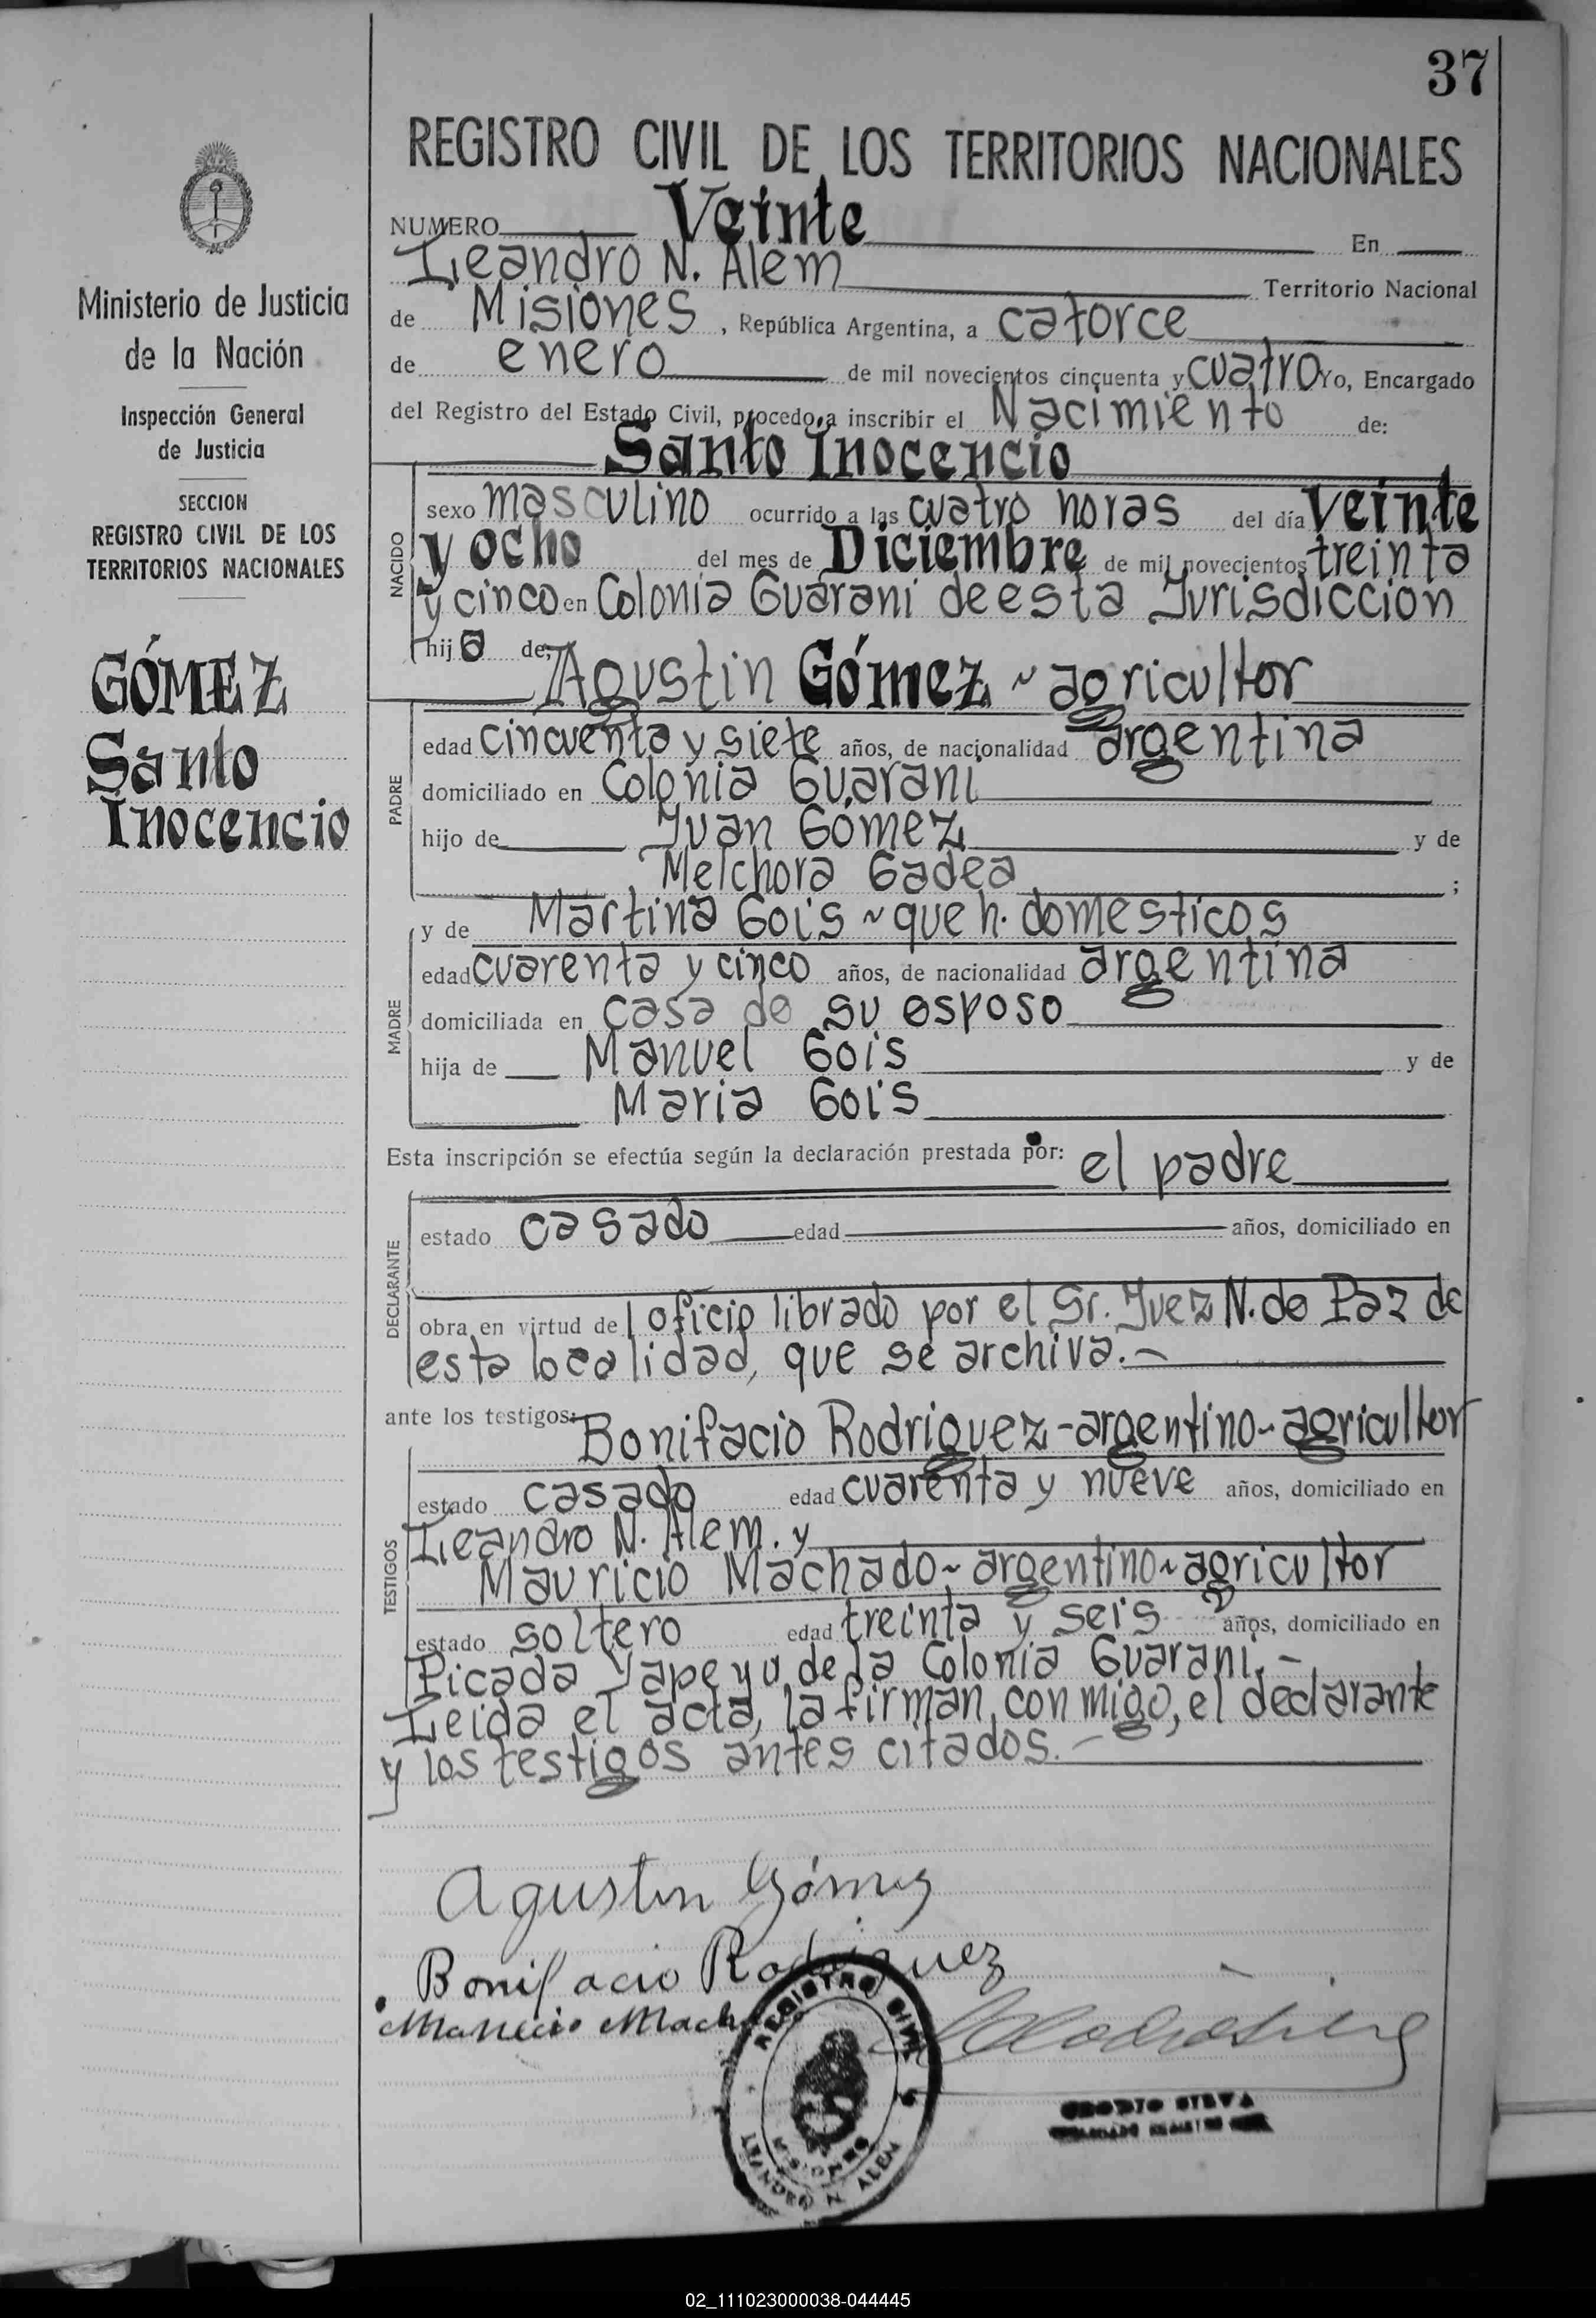 37
REGISTRO CIVIL DE LOS TERRITORIOS NACIONALES
NUMERO Veinte En
Leandro N. Alem Territorio Nacional
de Misiones, República Argentina, a catorce
de enero de mil novecientos cincuenta y cuatro Yo, Encargado
del Registro del Estado Civil, procedo a inscribir el Nacimiento de:
Santo Inocencio
NACIDO
sexo masculino ocurrido a las cuatro horas del día Veinte
y ocho del mes de Diciembre de mil novecientos treinta
y cinco en Colonia Guarani de esta Jurisdiccion
hijo de: Agustin Gómez ~ agricultor
PADRE
edad cincuenta y siete años, de nacionalidad argentina
domiciliado en Colonia Guarani
hijo de Juan Gómez y de
Melchora Gadea ;
y de Martina Gois ~ que h. domesticos
MADRE
edad cuarenta y cinco años, de nacionalidad argentina
domiciliada en casa de su esposo
hija de Manuel Gois y de
Maria Gois
Esta inscripción se efectúa según la declaración prestada por: el padre
DECLARANTE
estado casado edad años, domiciliado en
obra en virtud del oficio librado por el Sr. Juez N. de Paz de
esta localidad, que se archiva.-
ante los testigos: Bonifacio Rodriguez - argentino - agricultor
TESTIGOS
estado casado edad cuarenta y nueve años, domiciliado en
Leandro N. Alem. y
Mauricio Machado ~ argentino ~ agricultor
estado soltero edad treinta y seis años, domiciliado en
Picada Yapeyu de la Colonia Guarani.-
Leida el acta, la firman, con migo, el declarante
y los testigos antes citados.-
Agustin Gómez
Bonifacio Rodriguez
Mauricio Mach
REGISTRO CIVIL
MISIONES
LEANDRO N. ALEM
Ministerio de Justicia
de la Nación
Inspección General
de Justicia
SECCION
REGISTRO CIVIL DE LOS
TERRITORIOS NACIONALES
GÓMEZ
Santo
Inocencio
02_111023000038-044445